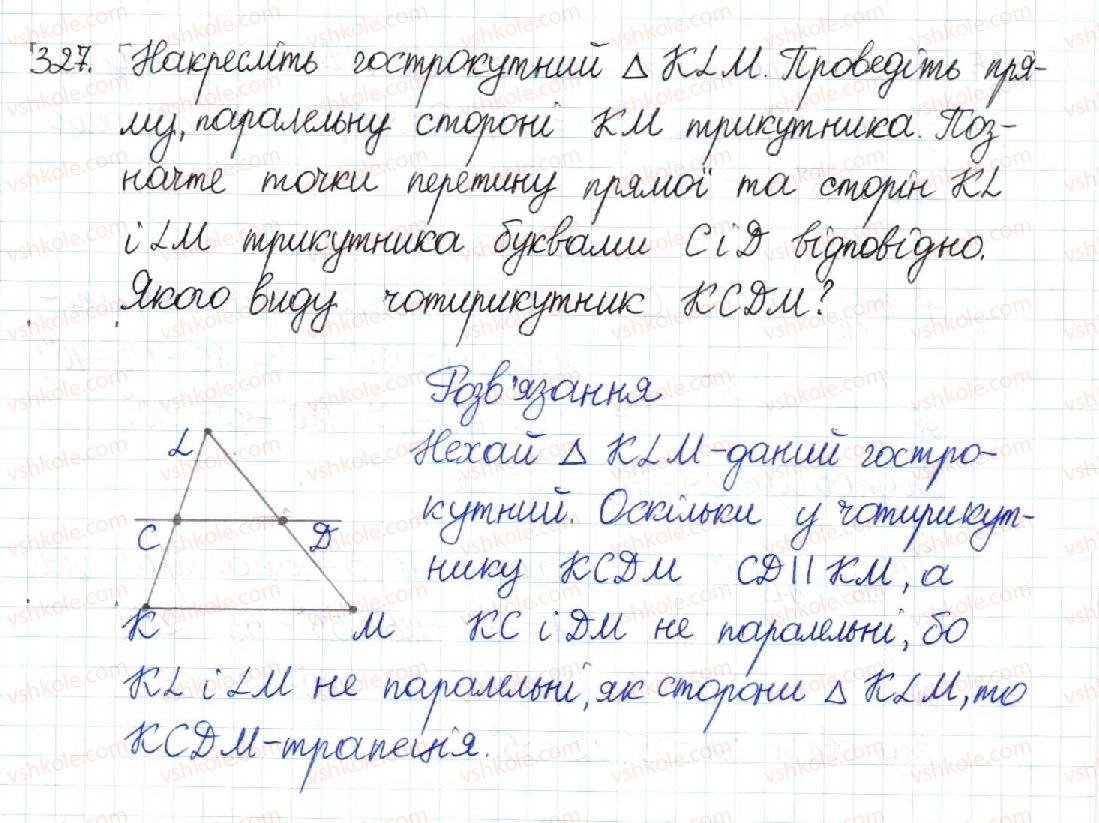 327. Накресліть гострокутний △ KLM. Проведіть пря-
му, паралельну стороні KM трикутника. Поз-
начте точки перетину прямої та сторін KL
і LM трикутника буквами C і D відповідно.
Якого виду чотирикутник KCDM?
Розв'язання
L
C
D
K
M
Нехай △ KLM – даний гостро-
кутний. Оскільки у чотирикут-
нику KCDM CD || KM, а
KC і DM не паралельні, бо
KL і LM не паралельні, як сторони △ KLM, то
KCDM – трапеція.
vshkole.com